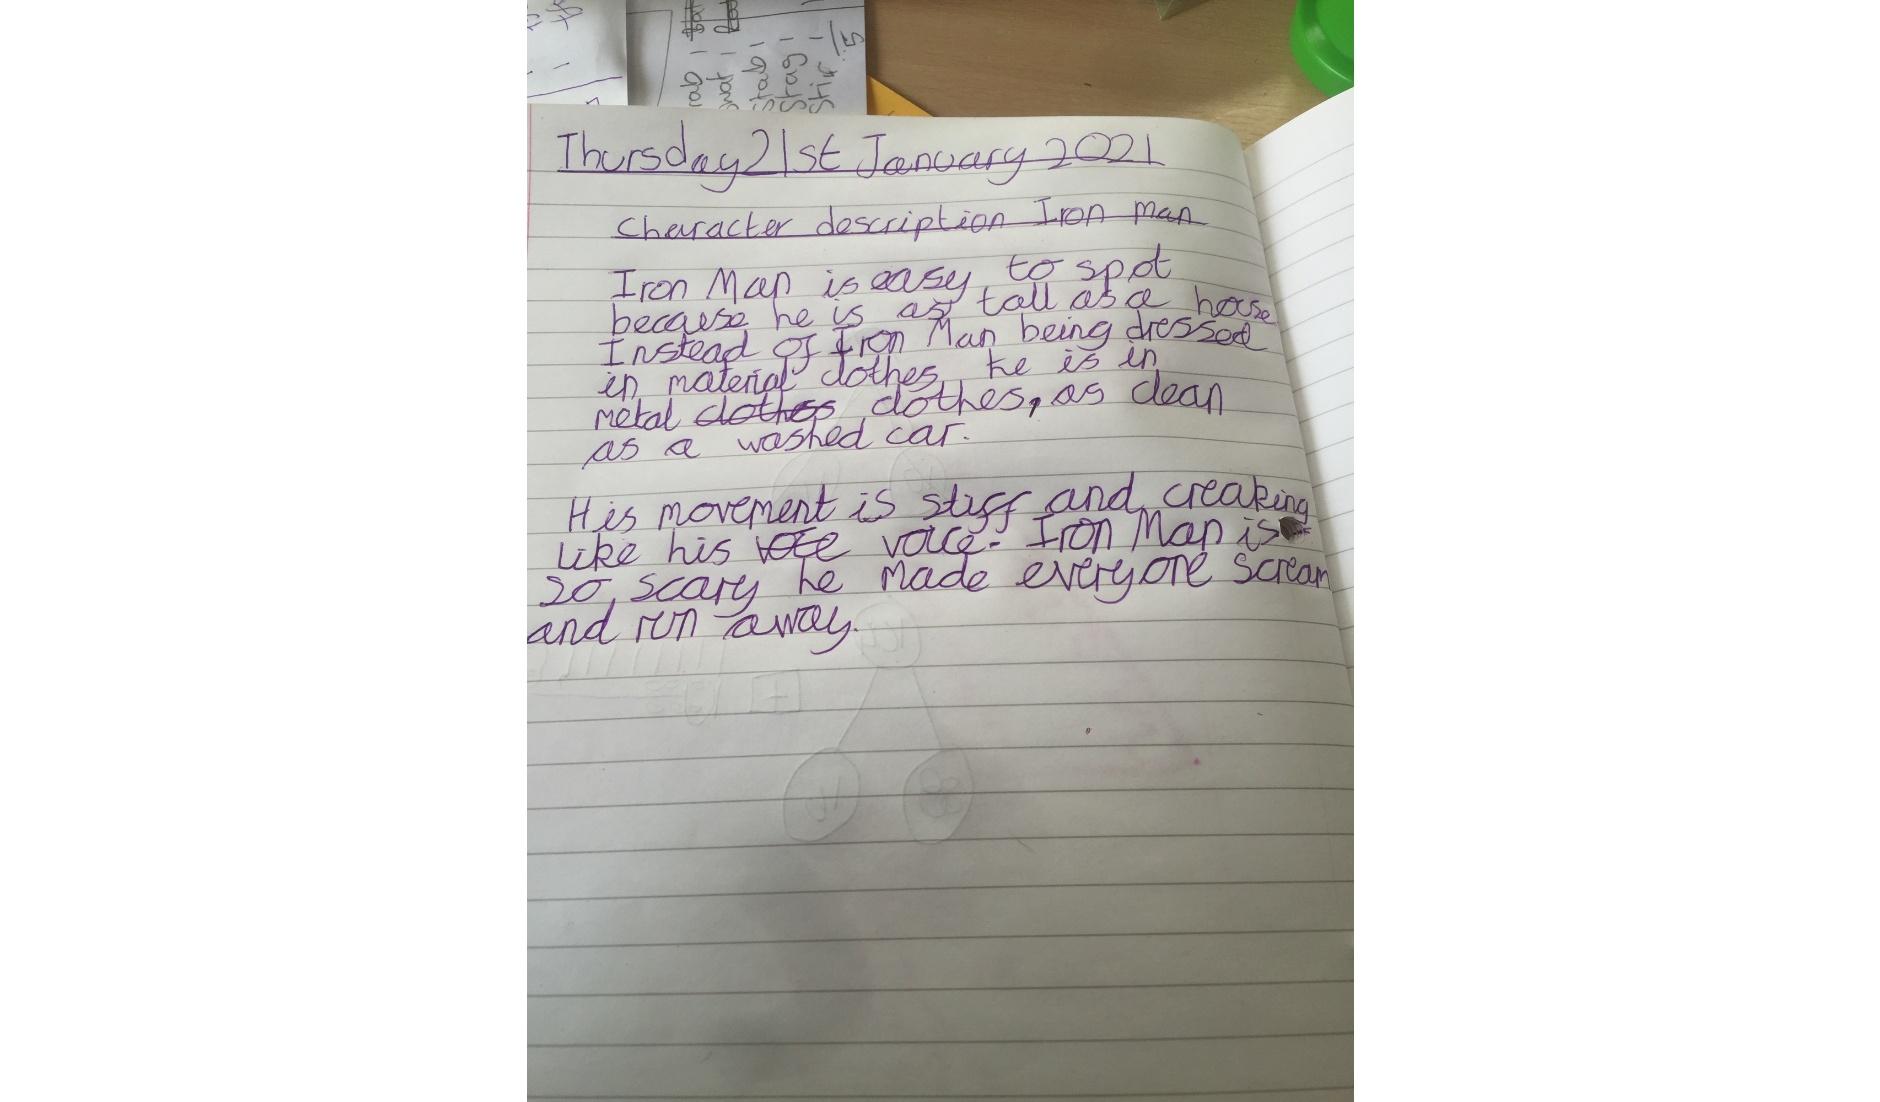 rab 1
swat 1
stab 1
stag 1
stir 1
Thursday 21st January 2021
character description Iron man
Iron Man is easy to spot
because he is as tall as a house
Instead of Iron Man being dressed
in material clothes he is in
metal clothes clothes, as clean
as a washed car.
His movement is stiff and creaking
like his vote voice. Iron Man is
so scary he made everyone scream
and run away.